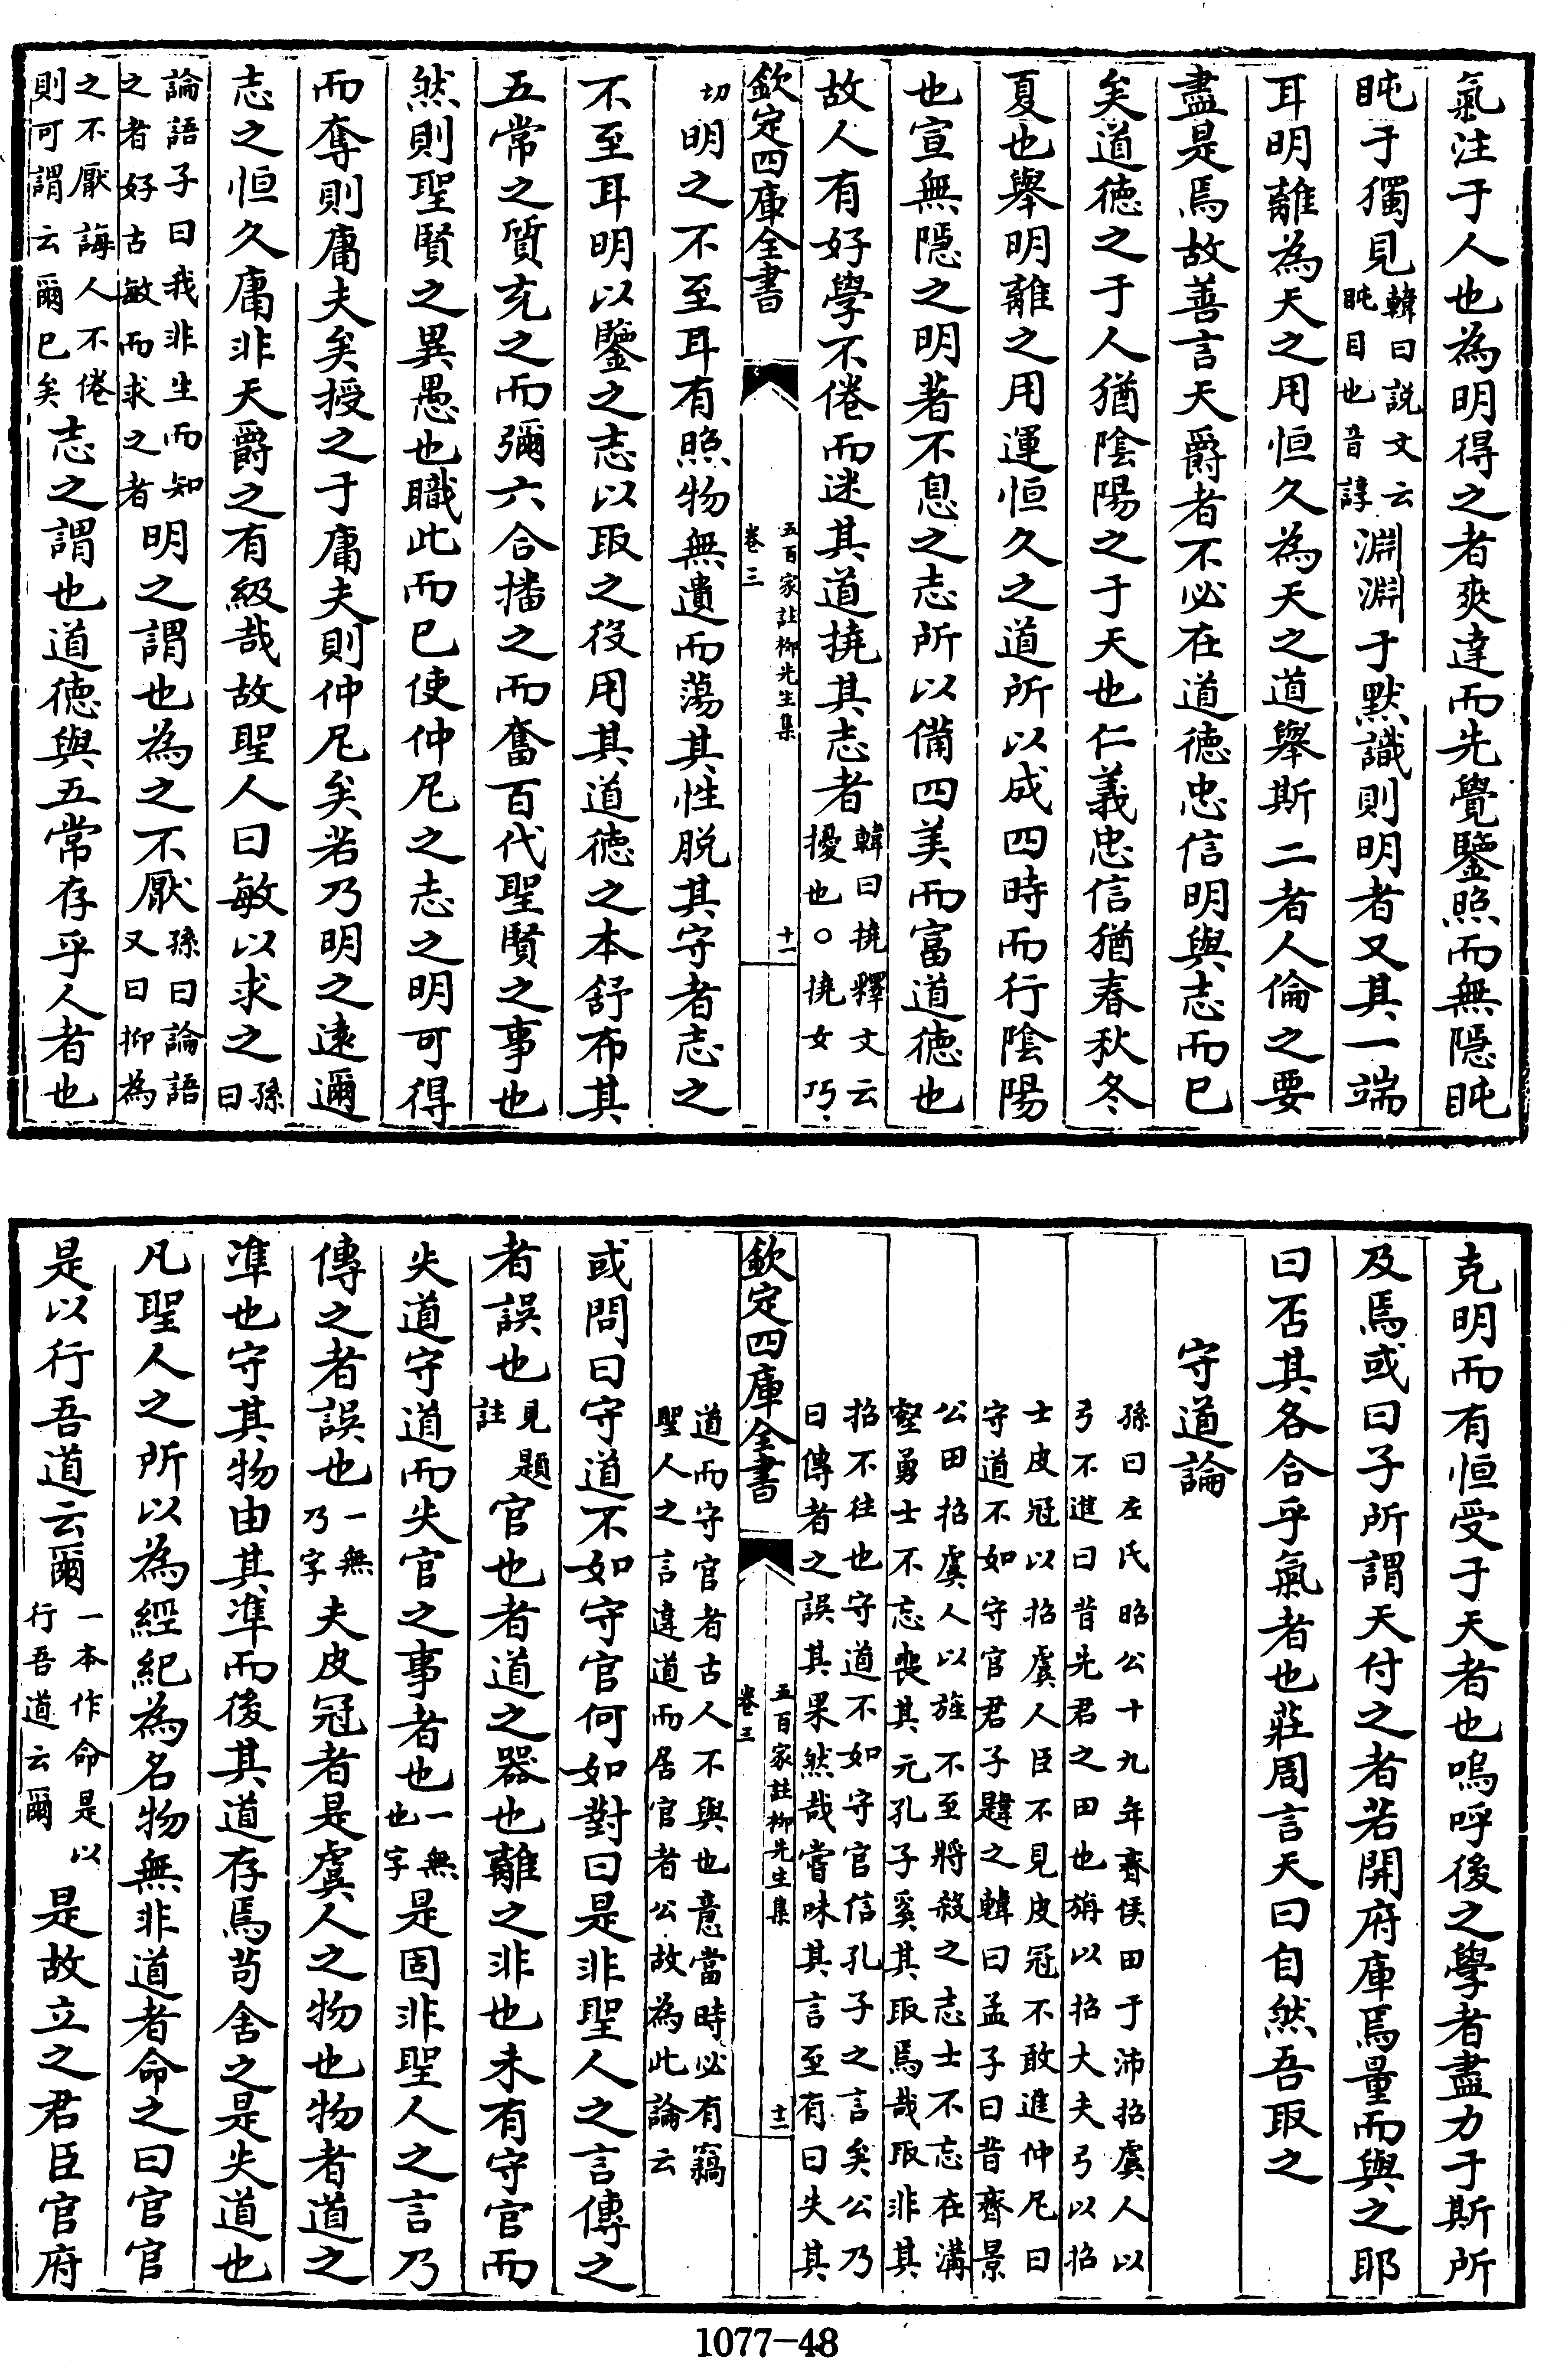 氣注于人也為明得之者爽達而先覺鑒照而無隱盹
盹于獨見韓曰説文云盹目也音諄淵淵于默識則明者又其一端
耳明離為天之用恒久為天之道舉斯二者人倫之要
盡是焉故善言天爵者不必在道徳忠信明與志而已
矣道徳之于人猶陰陽之于天也仁義忠信猶春秋冬
夏也舉明離之用運恒久之道所以成四時而行陰陽
也宣無隱之明著不息之志所以備四美而富道徳也
故人有好學不倦而迷其道撓其志者韓曰撓釋文云擾也○撓女巧
欽定四庫全書
五百家註栁先生集
卷三
十一
切明之不至耳有照物無遺而蕩其性脱其守者志之
不至耳明以鑒之志以取之役用其道徳之本舒布其
五常之質充之而彌六合播之而奮百代聖賢之事也
然則聖賢之異愚也職此而已使仲尼之志之明可得
而奪則庸夫矣授之于庸夫則仲尼矣若乃明之遠邇
志之恒久庸非天爵之有級哉故聖人曰敏以求之孫曰
論語子曰我非生而知之者好古敏而求之者明之謂也為之不厭孫曰論語又曰抑為
之不厭誨人不倦則可謂云爾已矣志之謂也道徳與五常存乎人者也
克明而有恒受于天者也嗚呼後之學者盡力于斯所
及焉或曰子所謂天付之者若開府庫焉量而與之耶
曰否其各合乎氣者也莊周言天曰自然吾取之
守道論
孫曰左氏昭公十九年齊侯田于沛招虞人以
弓不進曰昔先君之田也旃以招大夫弓以招
士皮冠以招虞人臣不見皮冠不敢進仲尼曰
守道不如守官君子韙之韓曰孟子曰昔齊景
公田招虞人以旌不至將殺之志士不忘在溝
壑勇士不忘喪其元孔子奚其取焉哉取非其
招不往也守道不如守官信孔子之言矣公乃
曰傳者之誤其果然哉嘗味其言至有曰失其
欽定四庫全書
五百家註栁先生集
卷三
十二
道而守官者古人不與也意當時必有竊
聖人之言違道而居官者公故為此論云
或問曰守道不如守官何如對曰是非聖人之言傳之
者誤也見題註官也者道之器也離之非也未有守官而
失道守道而失官之事者也一無也字是固非聖人之言乃
傳之者誤也一無乃字夫皮冠者是虞人之物也物者道之
準也守其物由其準而後其道存焉苟舍之是失道也
凡聖人之所以為經紀為名物無非道者命之曰官官
是以行吾道云爾一本作命是以行吾道云爾是故立之君臣官府
1077-48